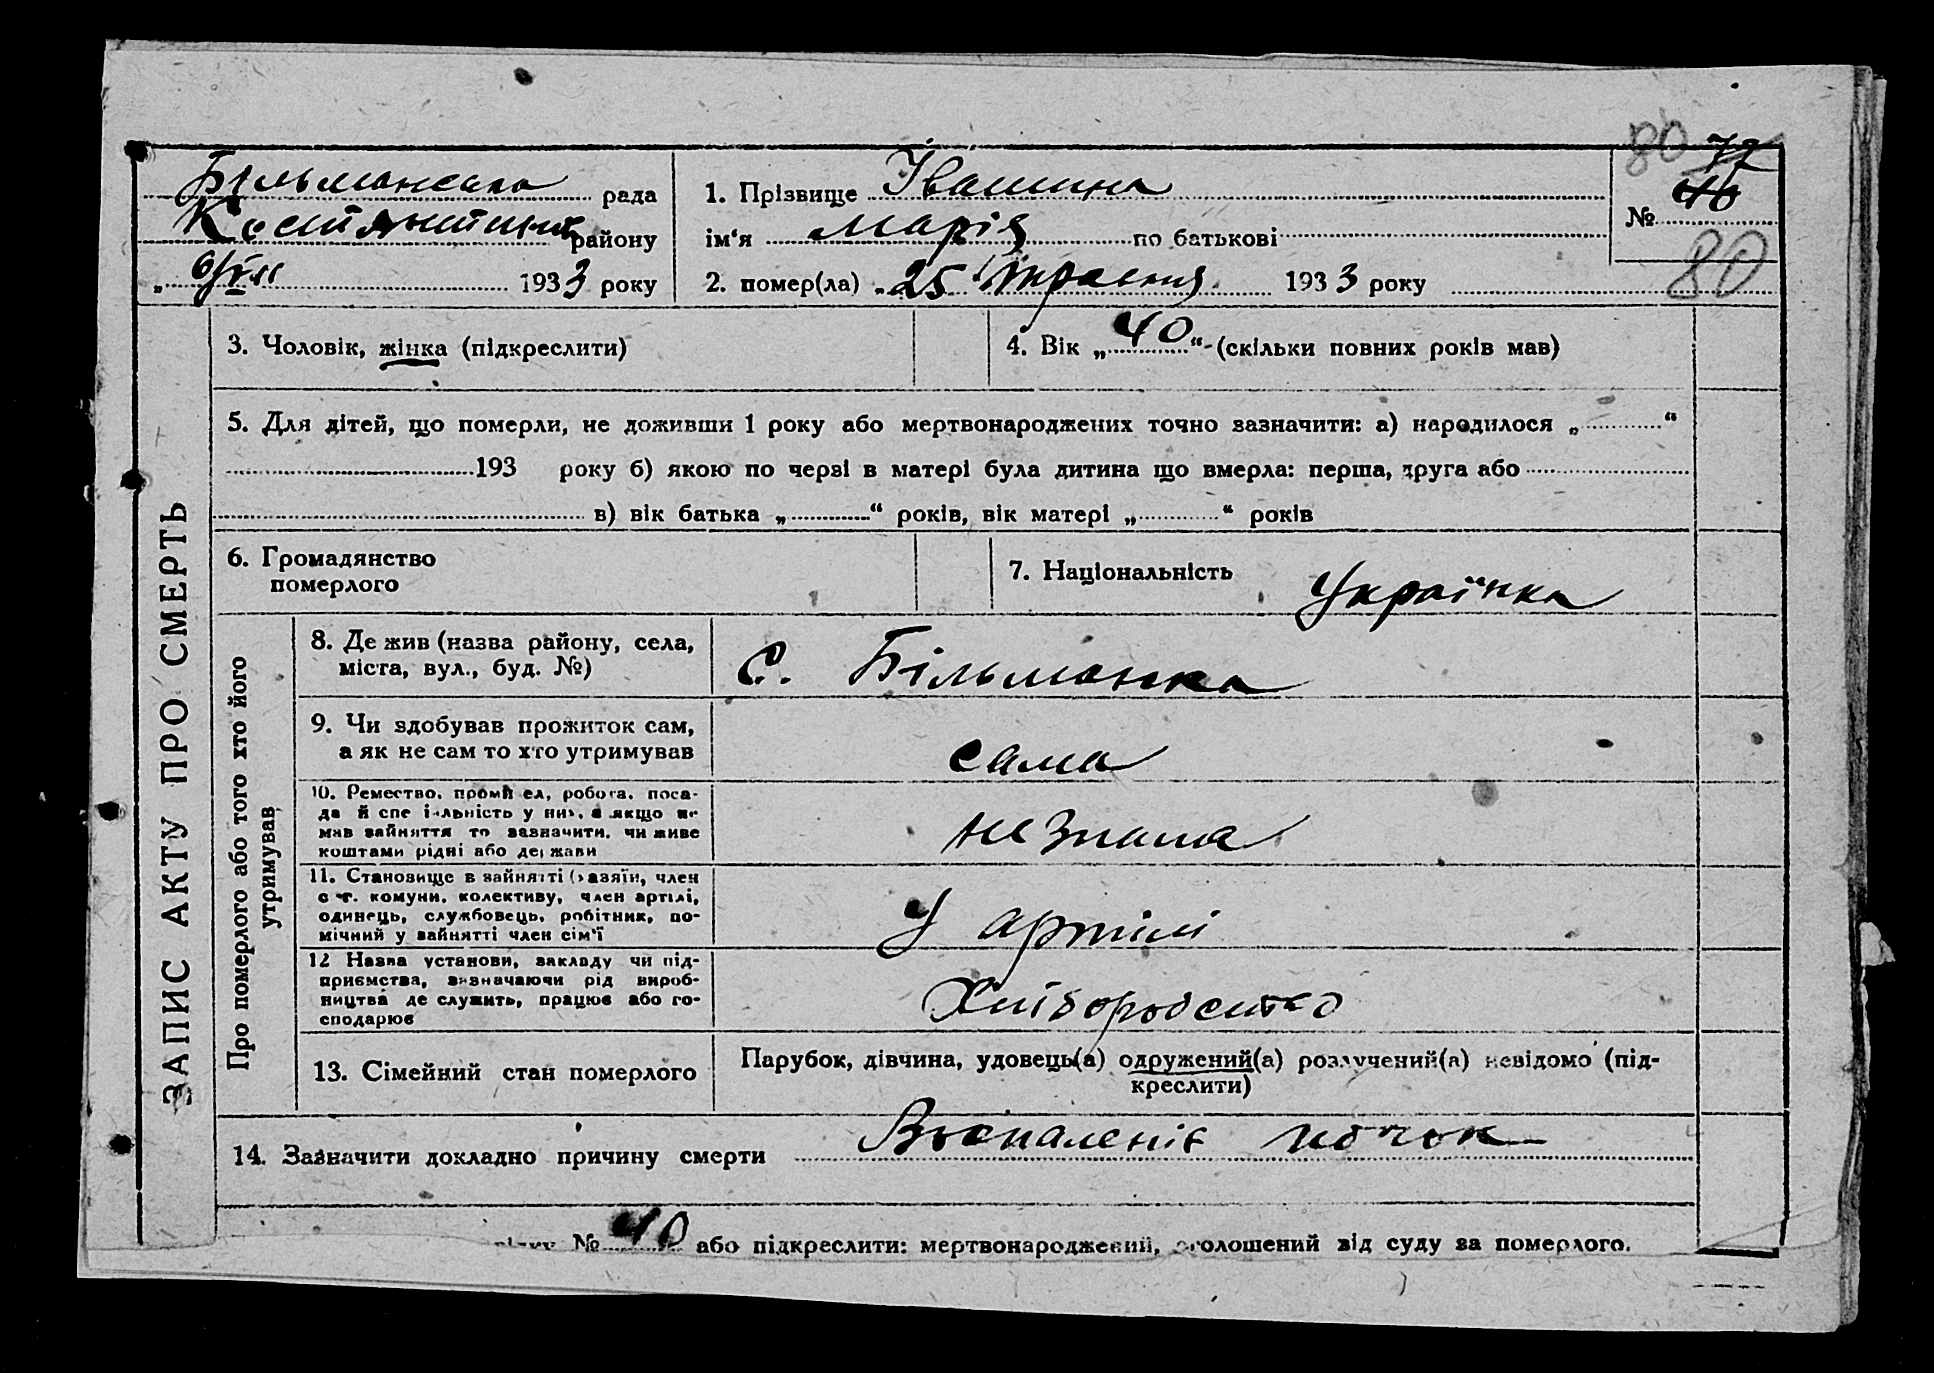 80 72
Більманська рада
1. Прізвище Івашина
№ 46
району
ім‘я Марія по батькові
80
„ 6/VI 1933 року
2. помер(ла) „25 Травня 1933 року
3. Чоловік, жінка (підкреслити)
4. Вік „40“ (скільки повних років мав)
5. Для дітей, що померли, не доживши 1 року або мертвонароджених точно зазначити: а) народилося „ “
193 року б) якою по черзі в матері була дитина що вмерла: перша, друга або
в) вік батька „ “ років, вік матері „ “ років
6. Громадянство
померлого
7. Національність Українка
ЗАПИС АКТУ ПРО СМЕРТЬ
Про померлого або того хто його
утримував
8. Де жив (назва району, села,
міста, вул., буд. №)
с. Більманка
9. Чи здобував прожиток сам,
а як не сам то хто утримував
сама
10. Ремество, промисел, робота, поса-
да й спеціяльність у них, а якщо не
мав зайняття то зазначити, чи живе
коштами рідні або держави
не знала
11. Становище в зайнятті (хазяїн, член
с.-г. комуни, колективу, член артілі,
одинець, службовець, робітник, по-
мічний у зайнятті член сім‘ї
У артілі
12 Назва установи, закладу чи під-
приємства, визначаючи рід вироб-
ництва де служить, працює або го-
сподарює
Хліборобство
13. Сімейний стан померлого
Парубок, дівчина, удовець(а) одружений(а) розлучений(а) невідомо (під-
креслити)
14. Зазначити докладно причину смерти Воспаленіє почок
№ 40 або підкреслити: мертвонароджений, оголошений від суду за померлого.